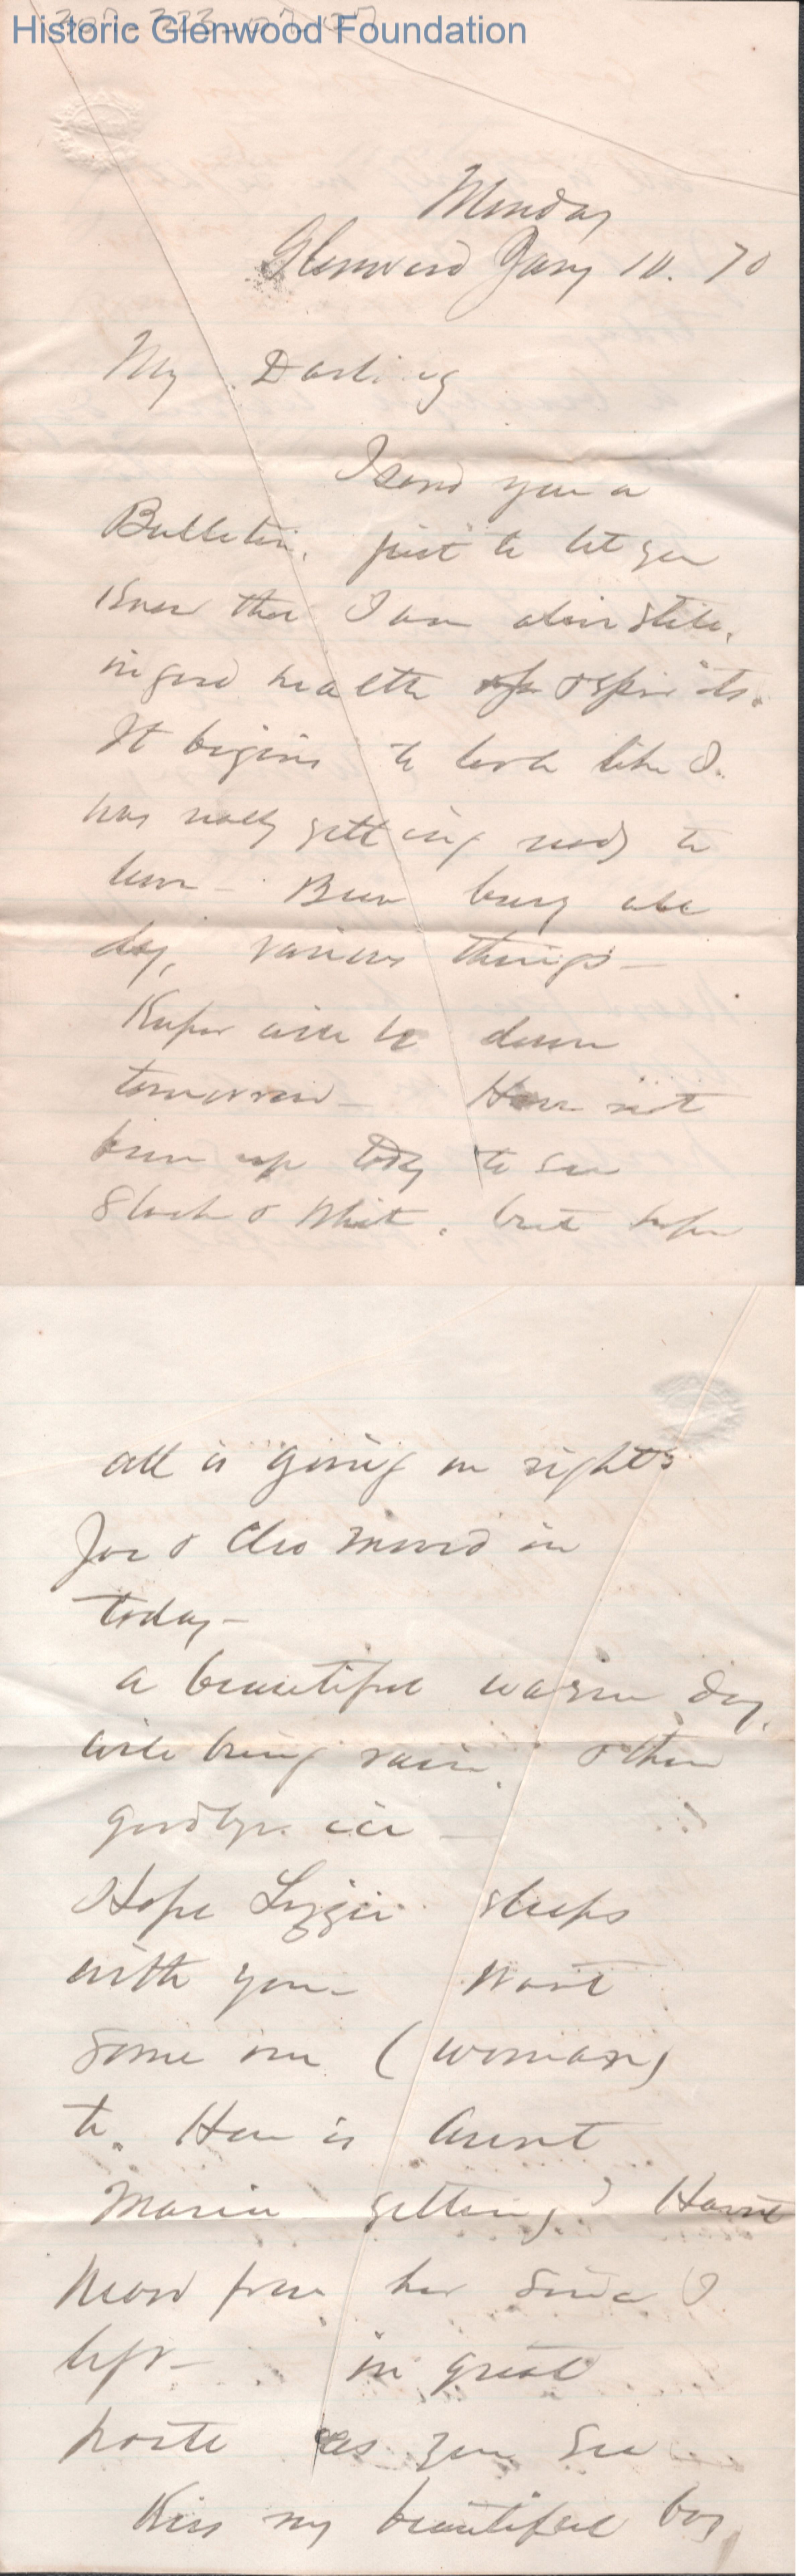 Historic Glenwood Foundation
Monday
Glenwood Jany 10. 70
My Darling
I send you a
Bulletin, just to let you
know that I am alive still,
in good health & spirits.
It begins to look like I
was really getting ready to
leave - Been busy all
day, various things -
will be down
tomorrow - Have not
been up today to see
Stock & Whit. but hope
all is going on right
Joe & Cleo moved in
today -
a beautiful warm day,
will bring rain, & then
goodbye ice -
Hope Lizzie sleeps
with you - Want
some one (woman)
to. How is Aunt
Maria getting? Havnt
heard from her since I
left - in great
haste as you see
Kiss my beautiful boy